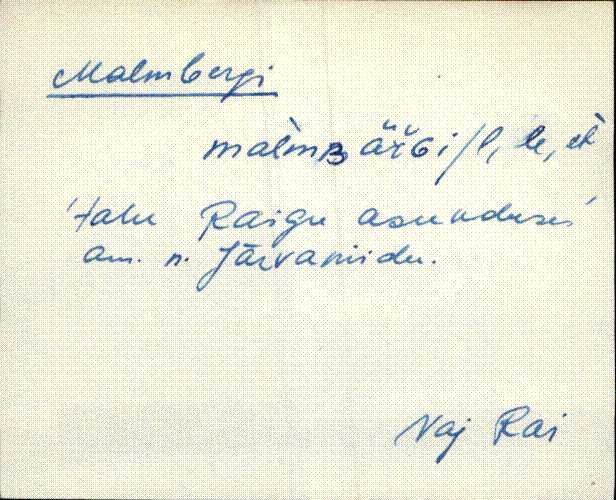 Malmbergi
malmʙ äřɢi/l, le, èt
'talu Raigu asunduses'
am. n. Järvaniidu.
Vaj Rai